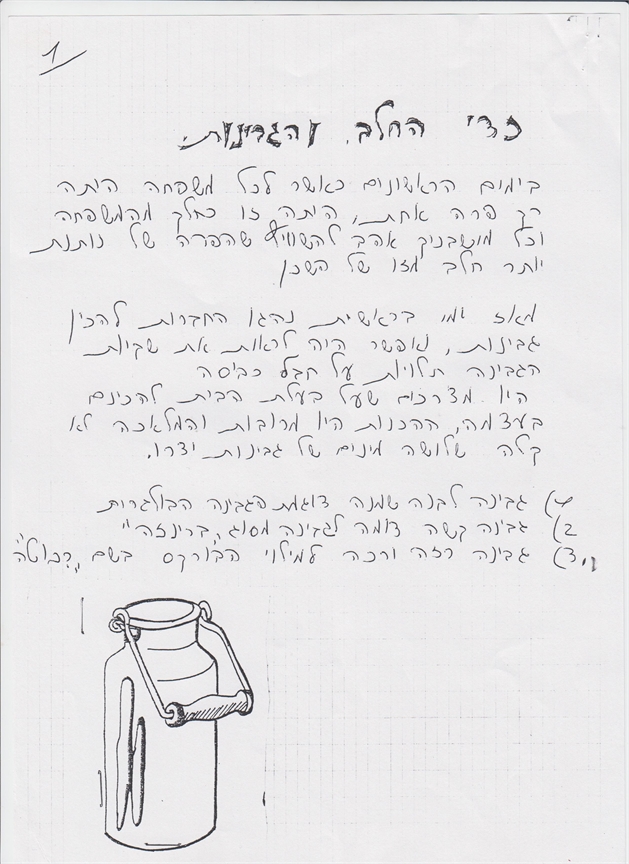 1
כדי החלב והגבינות.
בימים הראשונים כאשר לכל משפחה היתה
רק פרה אחת, היתה זו כחלק מהמשפחה
וכל מושבניק אהב להשוויץ שהפרה שלו נותנת
יותר חלב מזו של השכן
מאז ימי בראשית נהגו החברות להכין
גבינות, ואפשר היה לראות את שקיות
הגבינה תלויות על חבל כביסה
היו מצרכים שעל בעלת הבית להכינם
בעצמה, ההכנות היו מרובות והמלאכה לא
קלה שלושה מינים של גבינות יצרו.
1) גבינה לבנה שמנה דוגמת הגבינה הבולגרית
2) גבינה קשה דומה לגבינה מסוג "ברינזה"
3) גבינה רזה ורכה למילוי הבורקס בשם "ריכוטה"